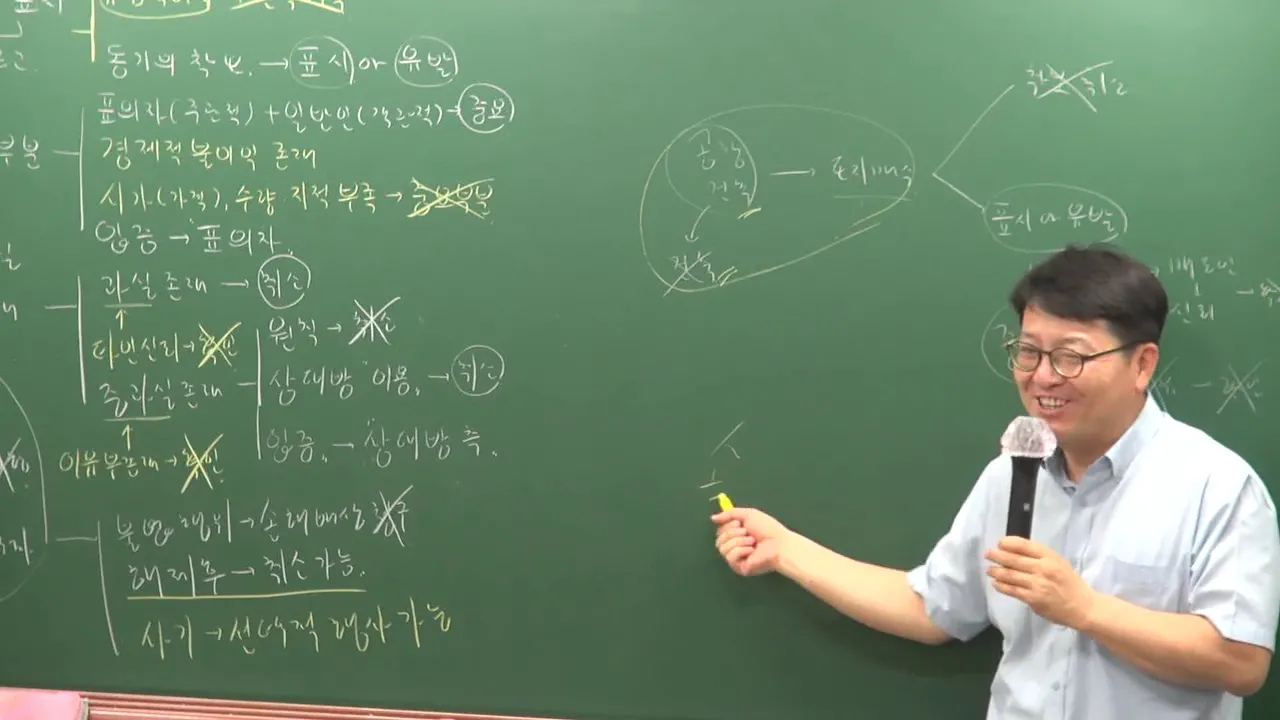 표시
동기의 착오. → 표시 or 유발
표의자(주관적) + 일반인(객관적) → 중요
부분
경제적 불이익 존재
시가(가격), 수량 지적 부족 → 중요부분
입증 → 표의자.
과실 존재 → 취소
타인신뢰 →
중과실 존재
원칙 → 취소
상대방 이용. → 취소
입증. → 상대방 측.
이유부존재 →
불법행위 → 손해배상 청구
해제 후 → 취소가능.
사기 → 선택적 행사 가능
공장
건축
→ 토지매수
건축
취소
표시 or 유발
매도인
신뢰